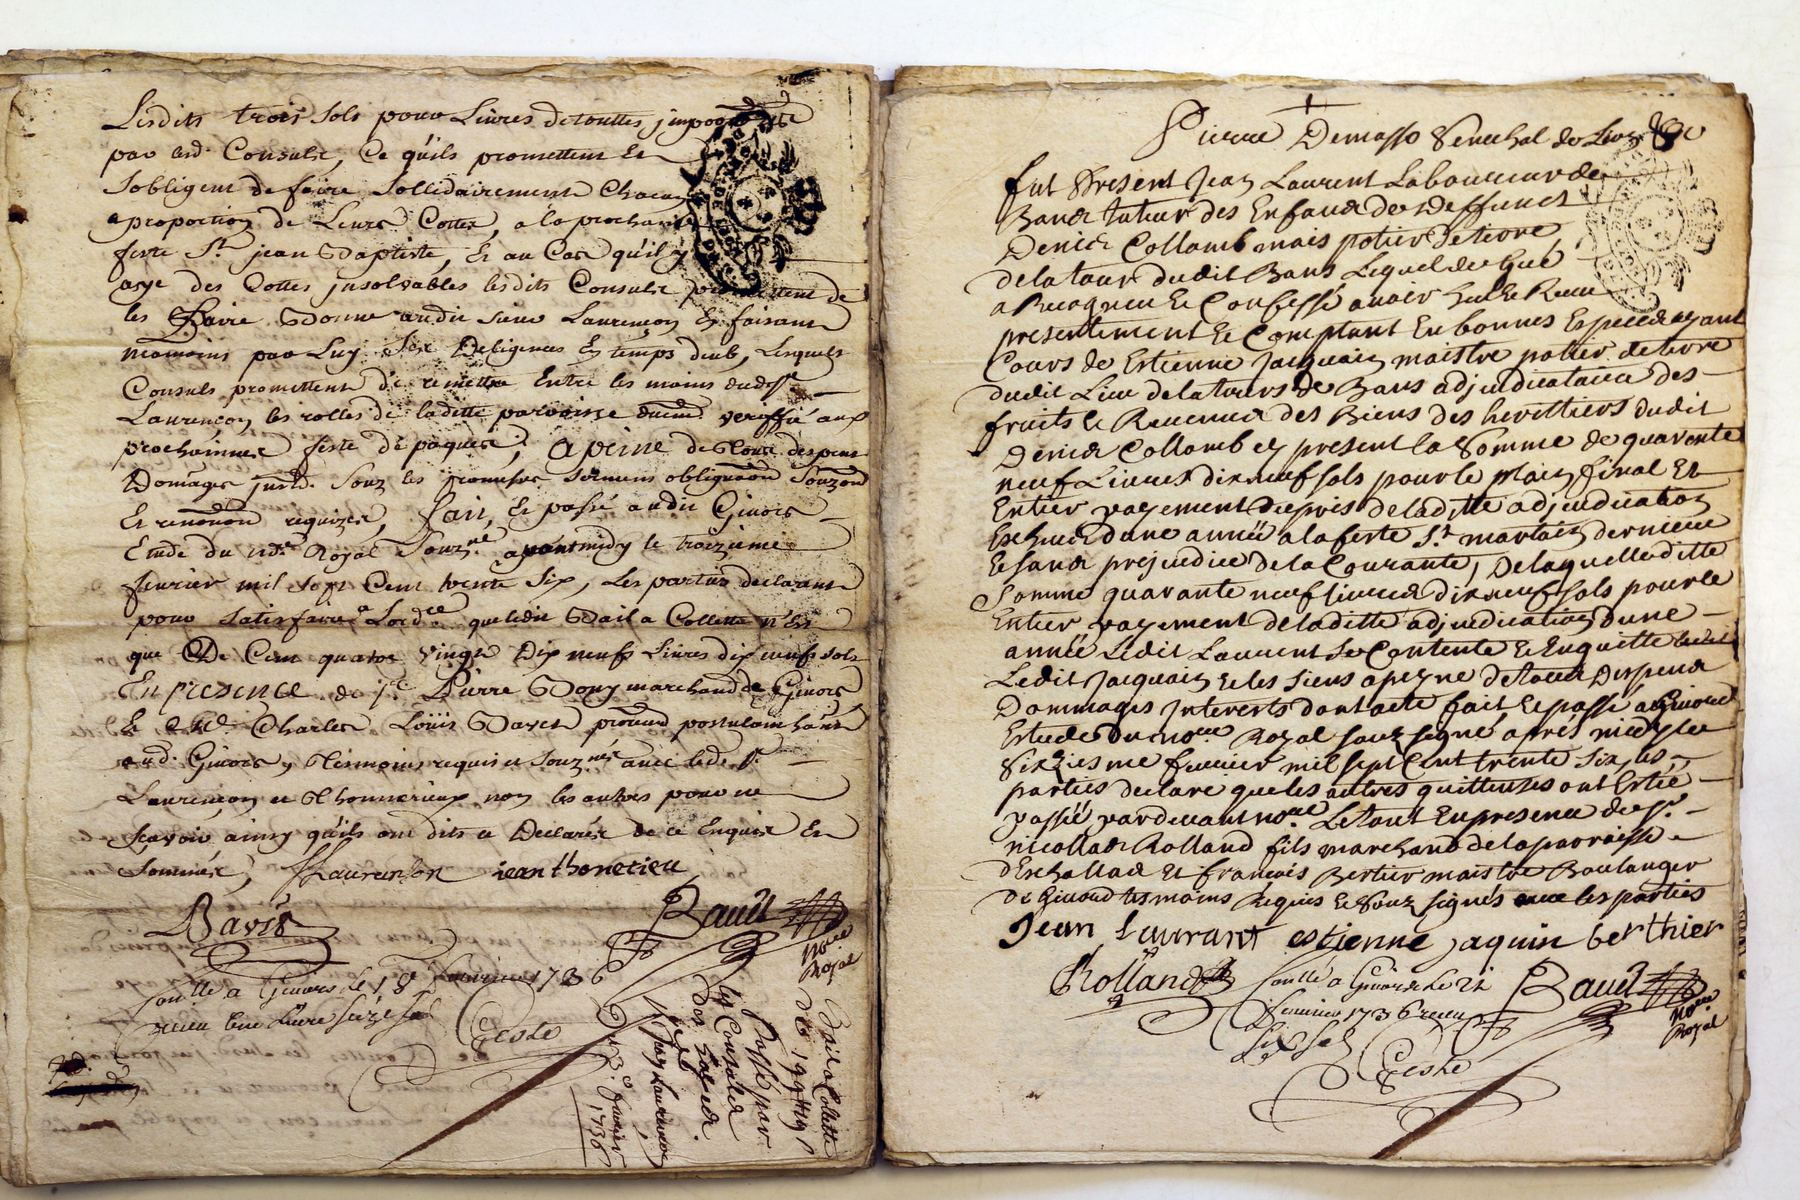 Lesdits trois sols pour Livres de touttes
par lesd. Consuls, Ce qu'ils promettent Et
sobligent de faire sollidairement Chacun
a proportion de Leurs Cottes, a la prochaine
feste St. jean Baptiste, Et au Cas qu'il y
aye des Cottes jnsolvables lesdits Consuls promettent de
les faire Bonne audit sieur Laurençon En faisant
neamoins par Luy Ses Deligences En temps deub, Lesquels
Consuls promettent de remettre Entre les mains dudt. sr.
Laurençon les rolles de laditte parroisse veriffié aux
prochaines feste de paques, A peine de tous despens
Domages jnterets. Souz les
Et requizes, fait, Et passé audit Givors
Etude du Royal Souzné. avant midy le troizieme
feuvrier mil sept Cent trente Six, Les parties declarant
pour satisfaire a Lordce. que ledit Bail a Collette n'Est
que De Cent quatre vingt Dix neufs Livres dix neufs sols
En presence de sr. Pierre Bony marchand de Givors
Et Me. Charles Loüis Bavet postulant
aud. Givors, tesmoins requis et Souznés avec led. sr.
Laurençon et Thonnerieux non les autres pour ne
scavoir ainsy quils ont dits et Declarés de ce Enquis Et
Sommés,
Laurançon jean thonerieu
Bavet
Baudt
Noere
Royal
Conllé a Givors le 18 feuvrier 1736
receu une Livre seize sols
Geste
Bail a Collette
de 199₶ 19 s
Passé par
les Consuls
de
a jean Laurençon
Du 3e. fevrier
1736
Pierre Demasso Senechal de Lion
fut Present Jean Laurent Laboureur de
Bans tuteur des Enfants de deffunct
Denis Collomb mais potier de terre
de la tour dudit Bans Lequel de Gré
a Recogneu Et Confessé avoir heu Et Receu
presentement Et Comptant En bonnes Especes ayant
Cours de Estienne Jacquain maistre potier de terre
dudit Lieu de la tours de Bans adjudicataire des
fruits Et Revenus des Biens des herittiers dudit
Denis Collomb cy present la Somme de quarente
neuf Livres dix neuf sols pour le plain final Et
Entier payement du pris de laditte adjudication
Escheue d'une année a la feste St. martin derniere
Et sans prejudice de la Courante, De laquelle ditte
Somme quarante neuf livres dix neuf sols pour le
Entier payement de laditte adjudication d'une
année Ledit Laurent Se Contente Et En quitte
Ledit Jacquain Et les siens a peyne de tous Despens
Dommages Interests dont acte fait Et passé a Givors
Estude du noere Royal sous signé aprés midy le
Sixiesme feuvrier mil sept Cent trente Six, les
parties declaré que les autres quittenses ont Esté
passé par devant noere Letout En presence de sr.
nicollas Rolland fils marchand de la parroisse
d'Eschallas Et françois Bertier maistre Boulanger
de Givors tesmoins Requis Et Souz signés avec les parties
Jean Laurant estienne jaquin berthier
Rolland
Baudt
Noere
Royal
Conllé a Givors Le 22
feuvrier 1736 receu
Six Sols
Geste